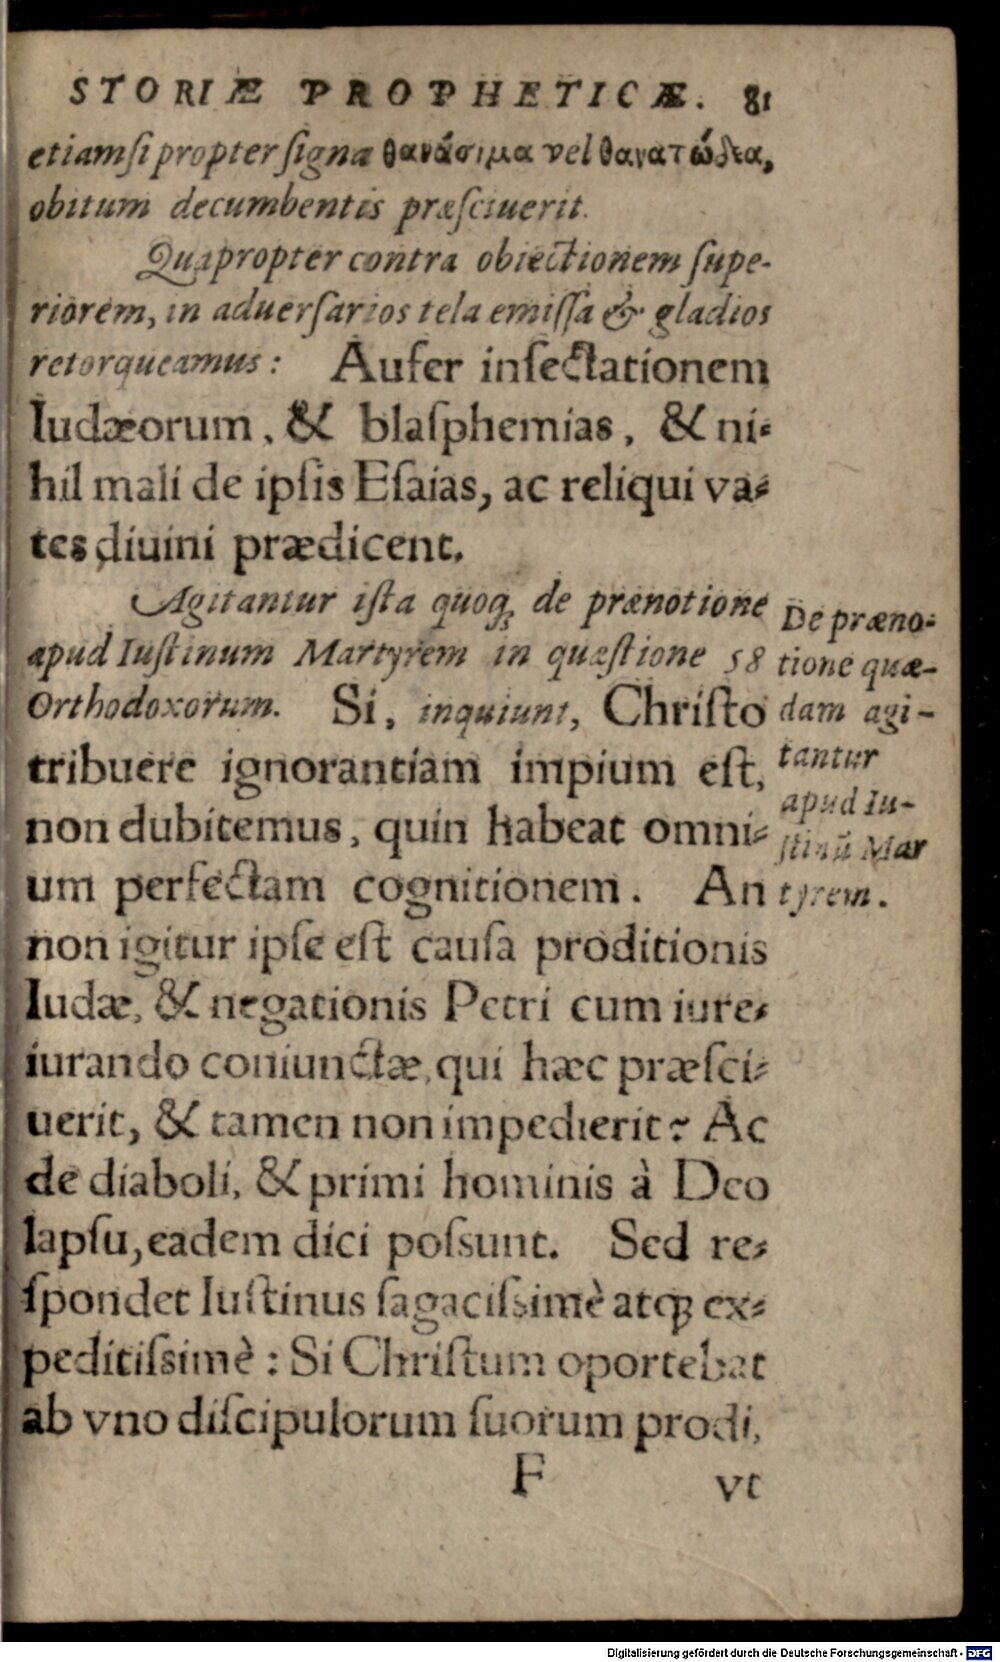 STORIÆ PROPHETICÆ. 81
etiamſi propter ſigna θανάσιμα vel θανατώδεα,
obitum decumbentis præſciuerit.
Quapropter contra obiectionem ſupe-
riorem, in aduerſarios tela emiſſa & gladios
retorqueamus: Aufer inſectationem
Iudæorum, & blaſphemias, & ni-
hil mali de ipſis Eſaias, ac reliqui va-
tes diuini prædicent.
Agitantur iſta quoq; de prænotione
apud Iuſtinum Martyrem in quæſtione 58
Orthodoxorum. Si, inquiunt, Chriſto
tribuere ignorantiam impium eſt,
non dubitemus, quin habeat omni-
um perfectam cognitionem. An
non igitur ipſe eſt cauſa proditionis
Iudæ, & negationis Petri cum iure-
iurando coniunctæ, qui hæc præſci-
uerit, & tamen non impedierit? Ac
de diaboli, & primi hominis à Deo
lapſu, eadem dici poſsunt. Sed re-
ſpondet Iuſtinus ſagaciſsimè atq; ex-
peditiſsimè: Si Chriſtum oportebat
ab vno diſcipulorum ſuorum prodi,
F vt
De præno-
tione quæ-
dam agi-
tantur
apud Iu-
ſtinū Mar
tyrem.
Digitalisierung gefördert durch die Deutsche Forschungsgemeinschaft - DFG